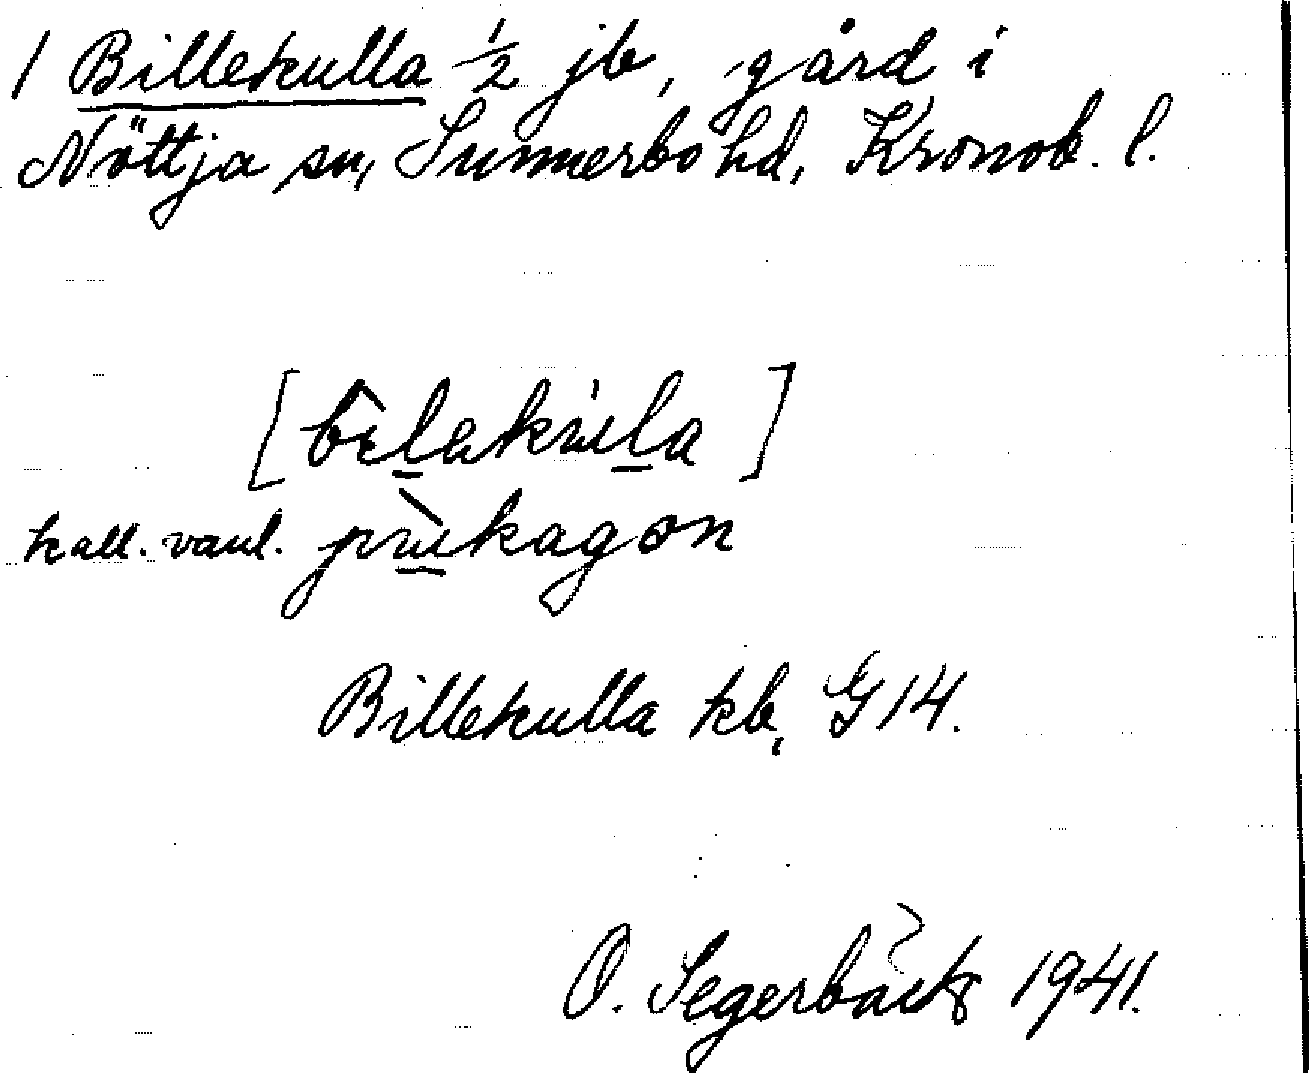 1 Billekulla ½ jb, gård i
Nöttja sn, Sunnerbo hd, Kronob. l.
[bèlakúla]
kall. vanl. prùkagon
Billekulla kb, G 14.
O. Segerbäck 1941.